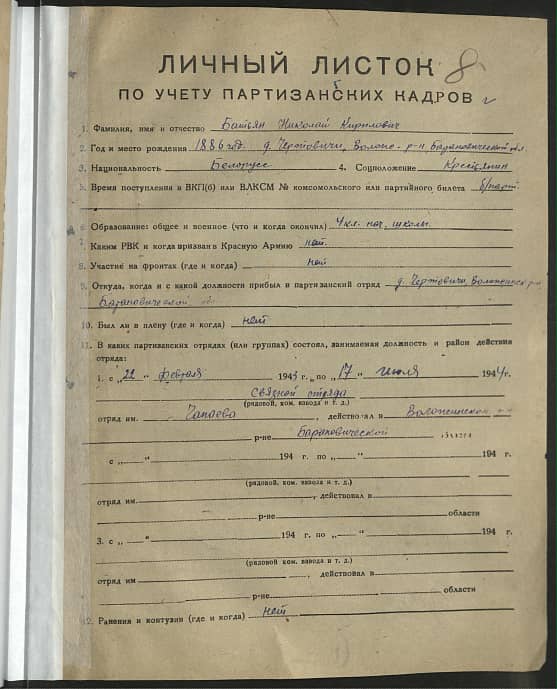 ЛИЧНЫЙ ЛИСТОК 8
ПО УЧЕТУ ПАРТИЗАНСКИХ КАДРОВ
1. Фамилия, имя и отчество Батьян Николай Кирилович
2. Год и место рождения 1886 год. д. Чертовичи, Волож. р-н Барановической обл
3. Национальность Белорус 4. Соцположение Крестьянин
5. Время поступления в ВКП(б) или ВЛКСМ № комсомольского или партийного билета б/парт
6. Образование: общее и военное (что и когда окончил) 4 кл. нач. школы.
7. Каким РВК и когда призван в Красную Армию нет.
8. Участие на фронтах (где и когда) нет
9. Откуда, когда и с какой должности прибыл в партизанский отряд д. Чертовичи, Воложинск р-н
Барановической обл
10. Был ли в плену (где и когда) нет
11. В каких партизанских отрядах (или группах) состоял, занимаемая должность и район действия
отряда:
1. с „22 “ февраля 1943 г. по „17 “ июля 1944 г.
Связной отряда
(рядовой, ком. взвода и т. д.)
отряд им. Чапаева, действовал в Воложинском
р-не Барановической области
с „ “ 194 г. по „ “ 194 г.
(рядовой, ком. взвода и т. д.)
отряд им. , действовал в
р-не области
3. с „ “ 194 г. по „ “ 194 г.
(рядовой, ком. взвода и т. д.)
отряд им , действовал в
р-не области
12. Ранения и контузии (где и когда) нет